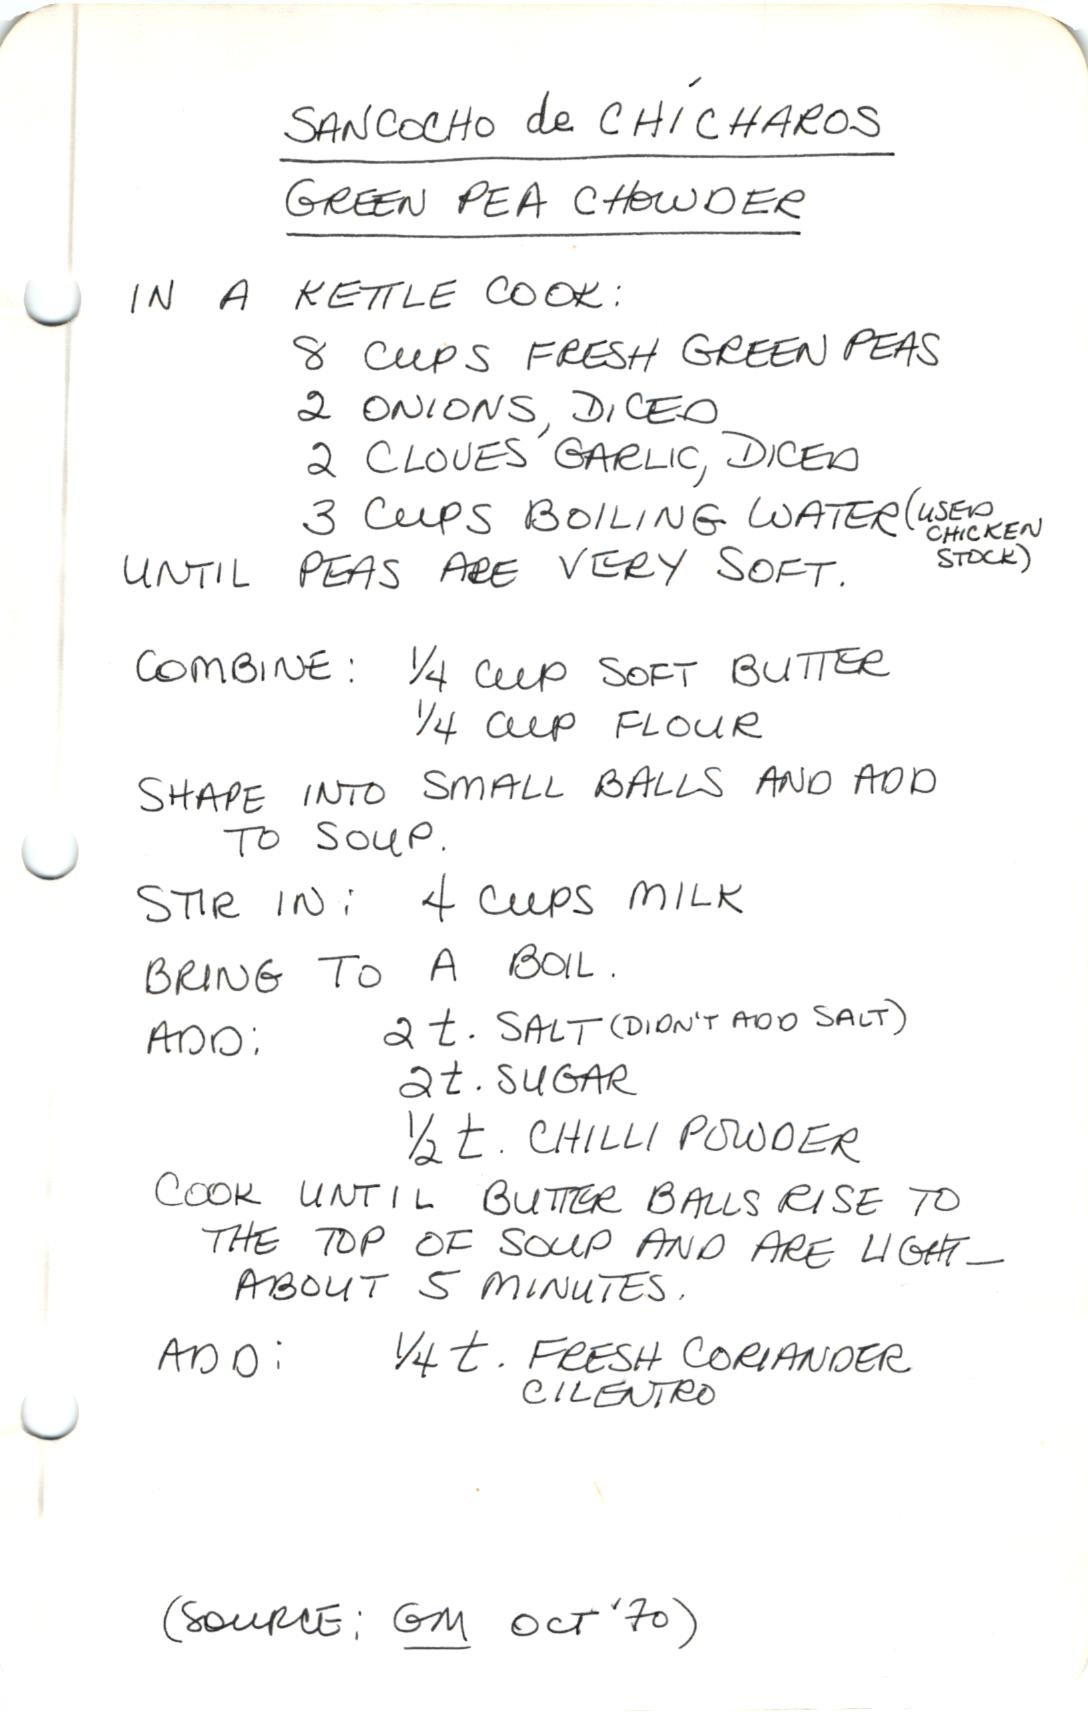 SANCOCHO de CHÍCHAROS
GREEN PEA CHOWDER
IN A KETTLE COOK:
8 CUPS FRESH GREEN PEAS
2 ONIONS, DICED
2 CLOVES GARLIC, DICED
3 CUPS BOILING WATER (USED
CHICKEN
STOCK)
UNTIL PEAS ARE VERY SOFT.
COMBINE: 1/4 CUP SOFT BUTTER
1/4 CUP FLOUR
SHAPE INTO SMALL BALLS AND ADD
TO SOUP.
STIR IN: 4 CUPS MILK
BRING TO A BOIL.
ADD: 2 t. SALT (DIDN'T ADD SALT)
2 t. SUGAR
1/2 t. CHILLI POWDER
COOK UNTIL BUTTER BALLS RISE TO
THE TOP OF SOUP AND ARE LIGHT—
ABOUT 5 MINUTES.
ADD: 1/4 t. FRESH CORIANDER
CILENTRO
(SOURCE: GM OCT '70)